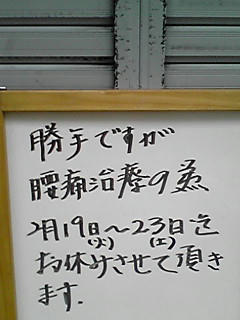 勝手ですが
腰痛治療の為
2月19日〜23日迄
(火) (土)
お休みさせて頂き
ます.